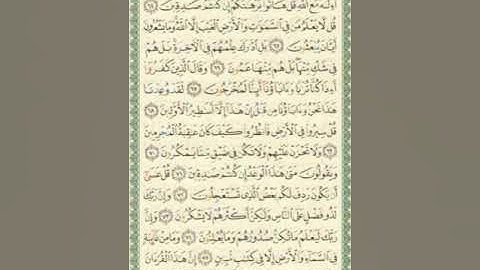 أءله مع الله قل هاتوا برهنكم إن كنتم صدقين ٦٤
قل لا يعلم من في السموت والأرض الغيب إلا الله وما يشعرون
أيان يبعثون ٦٥ بل ادرك علمهم في الآخرة بل هم
في شك منها بل هم منها عمون ٦٦ وقال الذين كفروا
أءذا كنا تربا وءاباؤنا أئنا لمخرجون ٦٧ لقد وعدنا
هذا نحن وءاباؤنا من قبل إن هذا إلا أسطير الأولين ٦٨
قل سيروا في الأرض فانظروا كيف كان عقبة المجرمين
٦٩ ولا تحزن عليهم ولا تكن في ضيق مما يمكرون ٧٠
ويقولون متى هذا الوعد إن كنتم صدقين ٧١ قل عسى
أن يكون ردف لكم بعض الذي تستعجلون ٧٢ وإن ربك
لذو فضل على الناس ولكن أكثرهم لا يشكرون ٧٣ وإن
ربك ليعلم ما تكن صدورهم وما يعلنون ٧٤ وما من غائبة
في السماء والأرض إلا في كتب مبين ٧٥ إن هذا القرءان